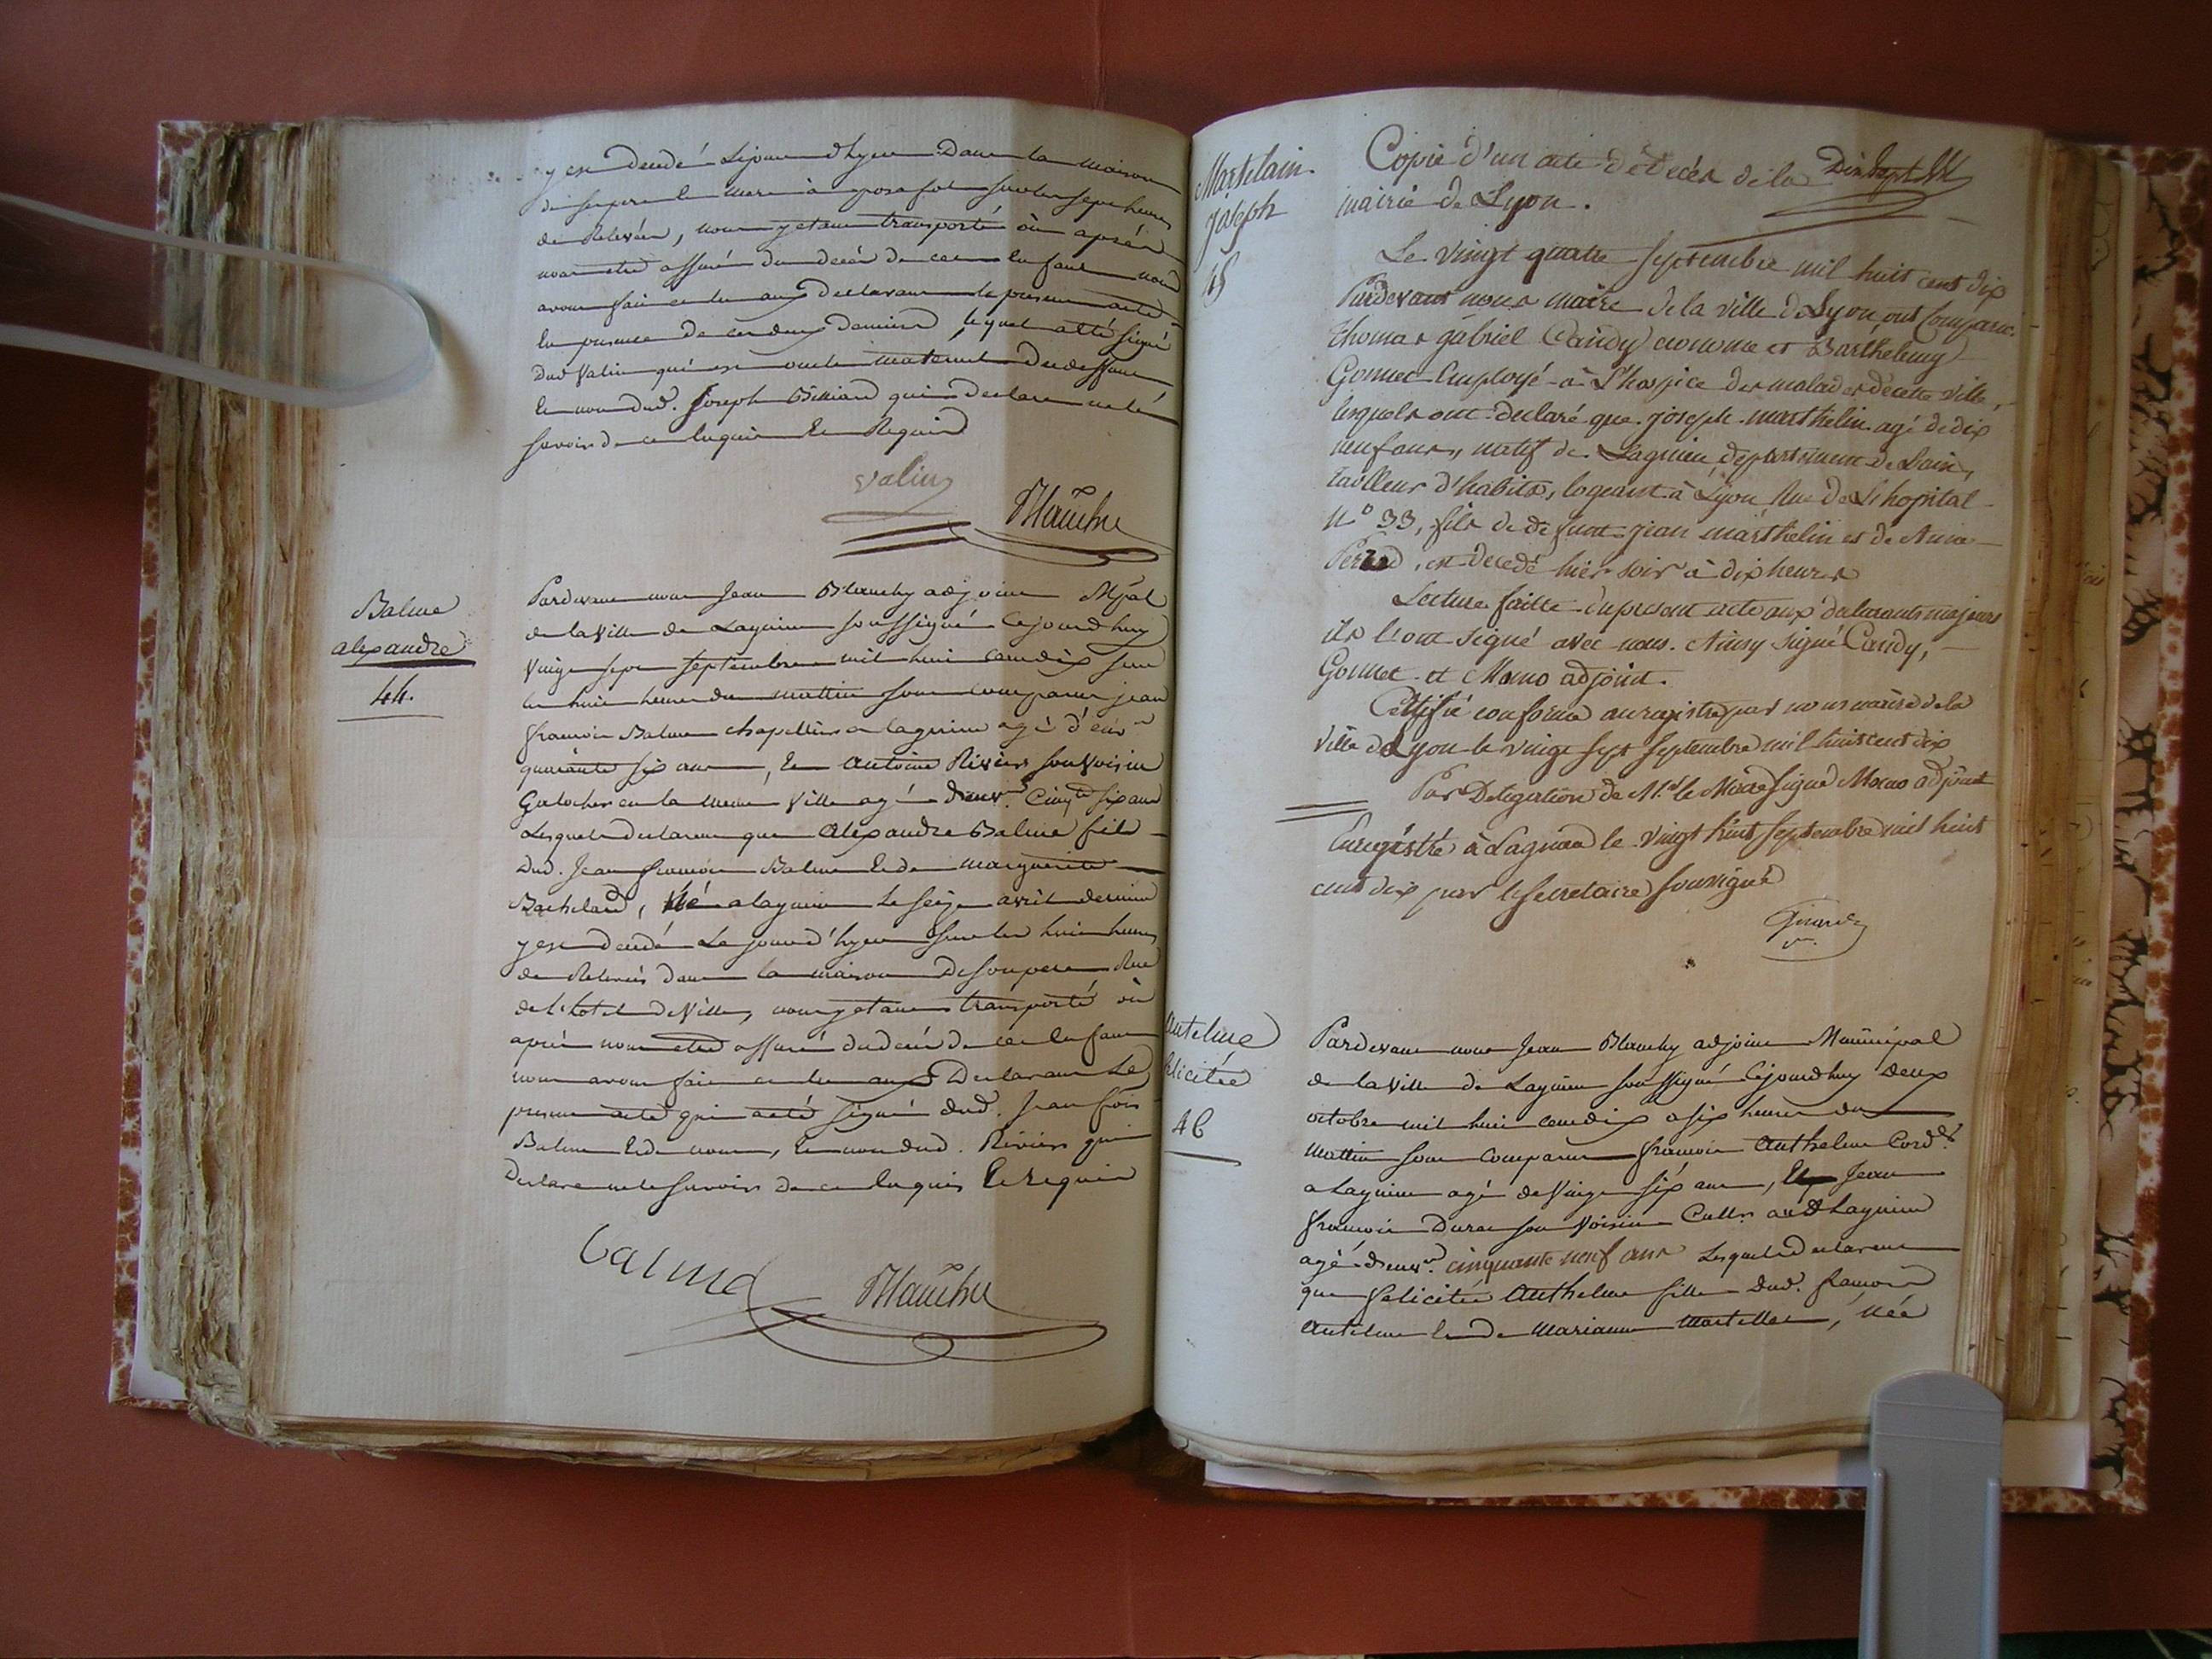 y est decedé Lejour dhyer Dans la maison
de ses pere le mere à posa sol sur les sept heures
de Relevée, nous y etant transporté où aprés
nous etre assuré du decés de cet enfant nous
avons fait en lu aux Declarant le present acte
En presence de ces deux derniers, lequel a été signé
Dud Valin qui est oncle maternel Du deffunt
Et non dud. Joseph Billiard qui a declaré ne le
savoir de ce Enquis Et Requis
Valin Blanchy
Balme
alexandre
44.
Pardevant nous Jean Blanchy adjoint Mpal
de la Ville de Lagnieu soussigné Cejourdhuy
Vingt sept septembre mil huit cent dix sur
les huit heures du mattin sont comparus jean
francois Balme chapellier a lagnieu agé d'env.on
quarante six ans, Et Antoine Rivier son Voisin
Galocher en la meme Ville agé denv.on Cinq.te six ans
Lesquels declarent que Alexandre Balme fils
Dud. Jean francois Balme Et de marguerite
Bachelard, Né a lagnieu Le seize avril dernier
y est decedé Le jour d'hyer sur les huit heures
de Relevée dans la maison De son pere Rue
de l'hotel de Ville, nous y etant transporté où
après nous etre assuré du decés de cet Enfant
nous avons fait en lu aux Declarant Le
present acte qui a été signé dud. Jean fois
Balme Et de nous, Et non dud. Rivier qui a
Declaré ne le savoir de ce Enquis Et requis
balme Blanchy
Martelain
Joseph
45
Copie d'un acte de Décès de la
mairie de Lyon.
Le vingt quatre septembre mil huit cent dix
Pardevant nous maire de la ville de Lyon, ont comparu
thomas gabriel Candy econome et Barthelemy
Gonnet Employé à L'hospice des malades de cette ville,
lesquels ont declaré que joseph marthelin agé de dix
neuf ans, natif de Lagnieu, departement de Lain,
tailleur d'habits, logeant à Lyon, Rue de L'hopital
N° 33, fils de defunt jean marthelin et de Anne
, est decedé hier soir à dix heures
Lecture faitte du present acte aux declarants majeurs
ils l'ont signé avec nous. Ainsy signé Candy,
Gonnet et Momo adjoint.
Certifié conforme au registre par nous maire de la
Ville de Lyon le vingt sept septembre mil huit cent dix
Par Deligation de M.r le Maire signé Momo adjoint
Enregistré à Lagnieu le Vingt huit septembre mil huit
cent dix par le secretaire soussigné
Girard
Antelme
felicitée
46
Pardevant nous Jean Blanchy adjoint Municipal
de la Ville de Lagnieu soussigné Cejourdhuy deux
octobre mil huit cent dix a six heures du
mattin sont comparus francois Anthelme Cord.er
a Lagnieu agé de Vingt six ans, Et Jean
francois Durac son Voisin Cult.r aud Lagnieu
agé denv.on cinquante neuf ans Lesquels declarent
que felicitée Anthelme fille Dud. francois
Antelme Et de Marianne , Née